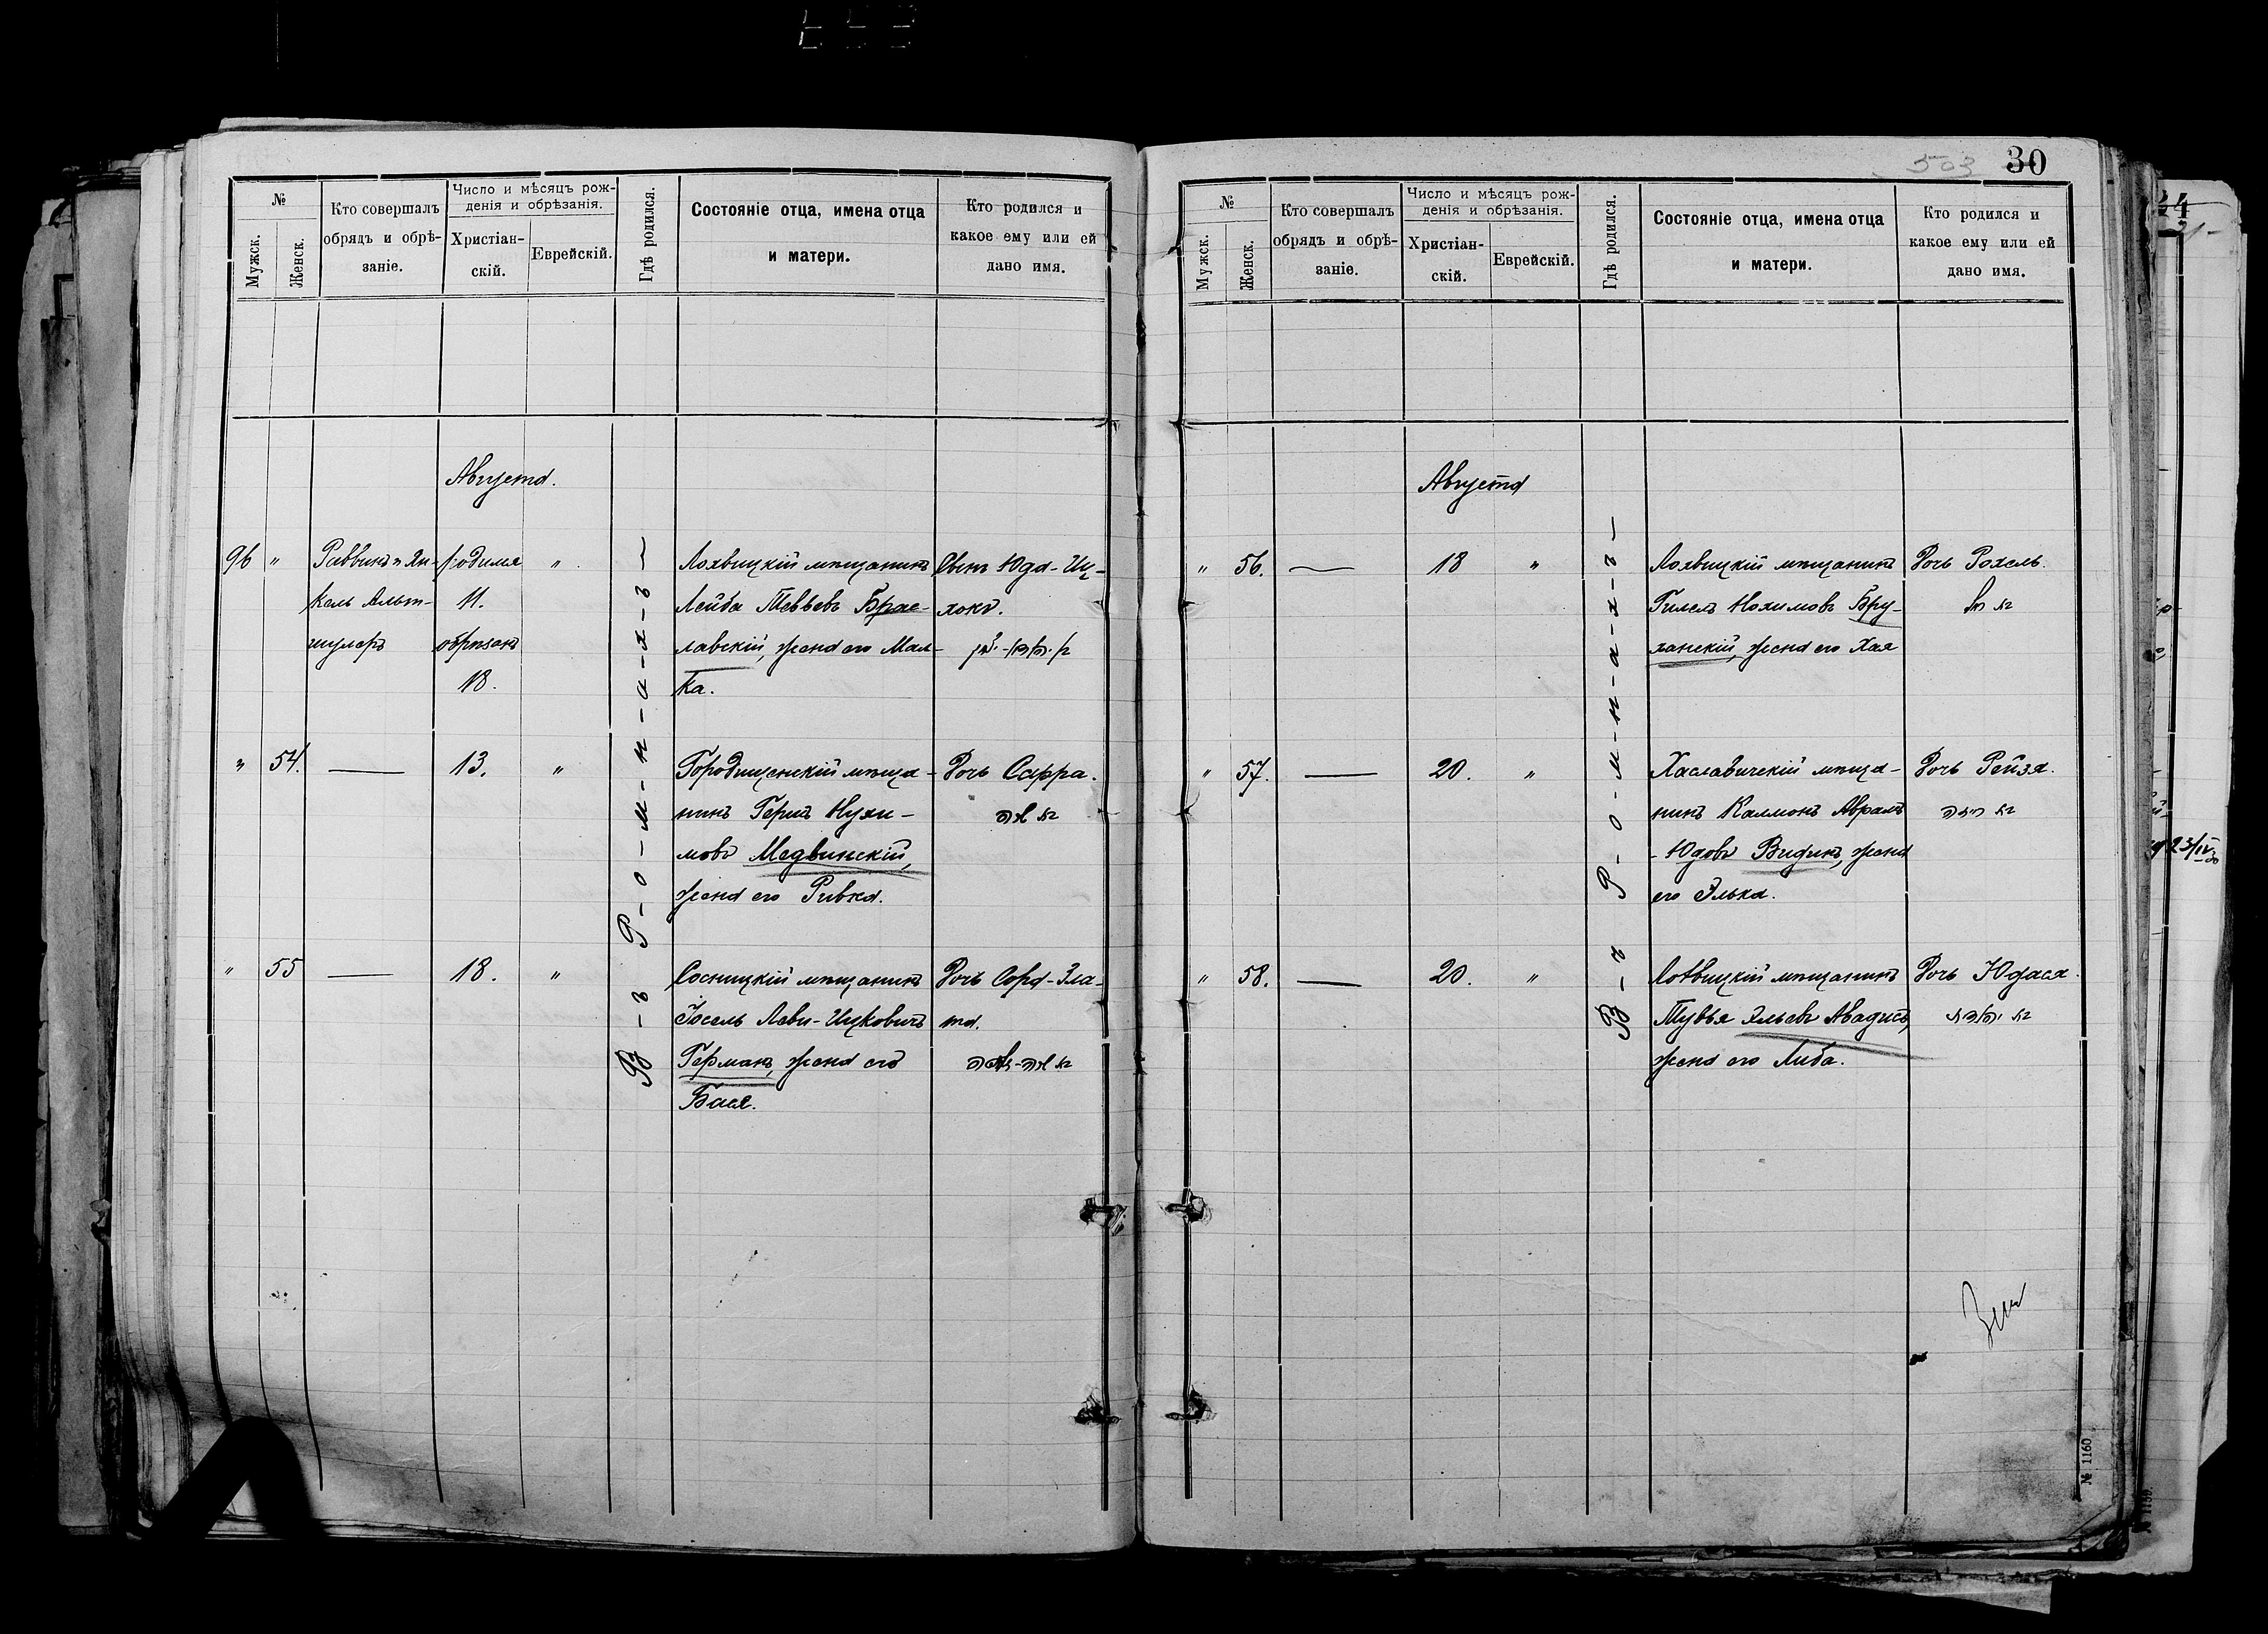 №
Мужск.
Женск.
Кто совершалъ
обрядъ и обрѣ-
заніе.
Число и мѣсяцъ рож-
денія и обрѣзанія.
Христіан-
скій.
Еврейскій.
Гдѣ родился.
Состояніе отца, имена отца
и матери.
Кто родился и
какое ему или ей
дано имя.
Августа.
В-ъ Р-о-м-н-а-х-ъ-
96 "
Раввинъ Ян-
кель Альт-
шулеръ
родился
11.
обрѣзанъ
18.
"
Лохвицкій мѣщанинъ
Лейба Тевьевъ Брас-
лавскій, жена его Мал-
ка.
Сынъ Юда-Иц-
хокъ.
" 54. —
13. "
Городищенскій мѣща-
нинъ Герша Нухи-
мовъ Медвинскій,
жена его Ривка.
Дочь Сарра.
" 55 —
18. "
Сосницкій мѣщанинъ
Іосель Леви-Ицковичъ
Германъ, жена его
Бася.
Дочь Сора-Зла-
та.
503 30
№
Мужск.
Женск.
Кто совершалъ
обрядъ и обрѣ-
заніе.
Число и мѣсяцъ рож-
денія и обрѣзанія.
Христіан-
скій.
Еврейскій.
Гдѣ родился.
Состояніе отца, имена отца
и матери.
Кто родился и
какое ему или ей
дано имя.
Августа
В-ъ Р-о-м-н-а-х-ъ-
" 56. —
18 "
Лохвицкій мѣщанинъ
Гилель Нохимовъ Бру-
ханскій, жена его Хая
Дочь Рохель.
" 57. —
20. "
Хаславичскій мѣща-
нинъ Калмонъ Аврамъ
-Юдовъ Видинъ, жена
его Элька.
Дочь Рейзя.
" 58. —
20. "
Лохвицкій мѣщанинъ
Тувья Эльевъ
жена его Люба.
Дочь Юдася.
№ 1160